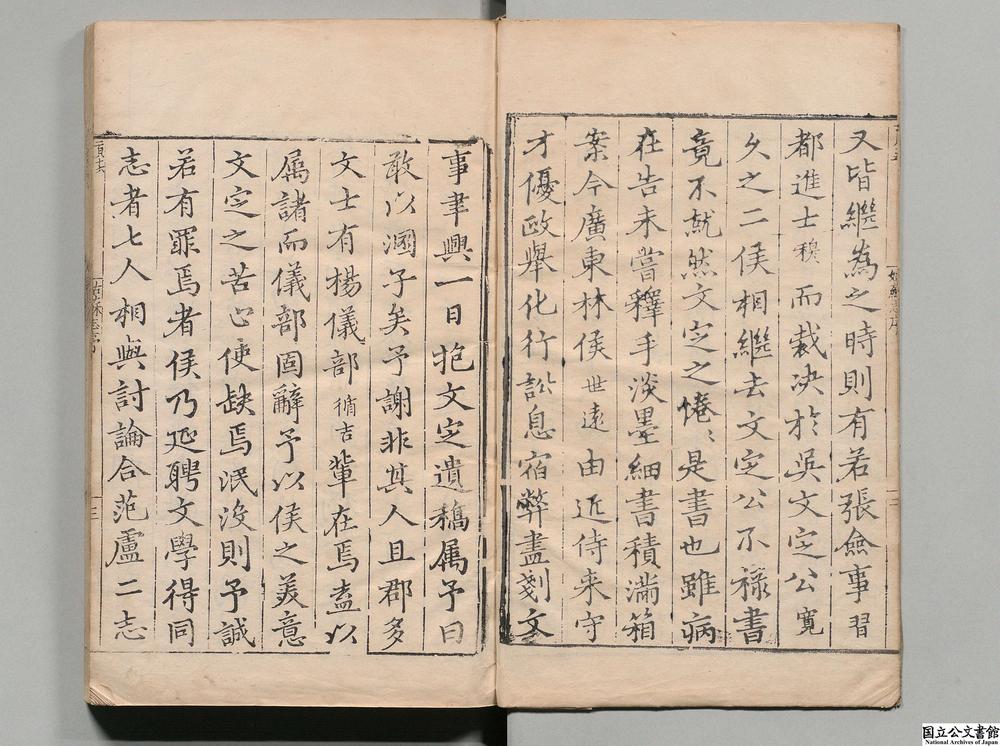 又皆繼為之時則有若張僉事習
都進士穆而裁决於吳文定公寬
久之二侯相繼去文定公不祿書
竟不就然文定之惓〻是書也雖病
在告未嘗釋手淡墨細書積滿箱
案今廣東林侯世遠由近侍来守
才優政舉化行訟息宿弊盡剗文
事聿興一日抱文定遺稿属予曰
敢以溷子矣予謝非其人且郡多
文士有楊儀部循吉軰在焉盍以
属諸而儀部固辭予以侯之美意
文定之苦心使缺焉泯没則予誠
若有罪焉者侯乃延聘文學得同
志者七人相與討論合范盧二志
姑蘇志序
国立公文書館
National Archives of Japan